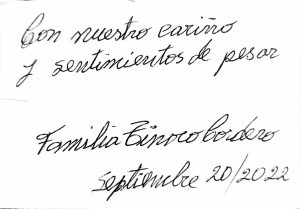 Con nuestro cariño
y sentimientos de pesar
Familia Tinoco Cordero
septiembre 20/2022